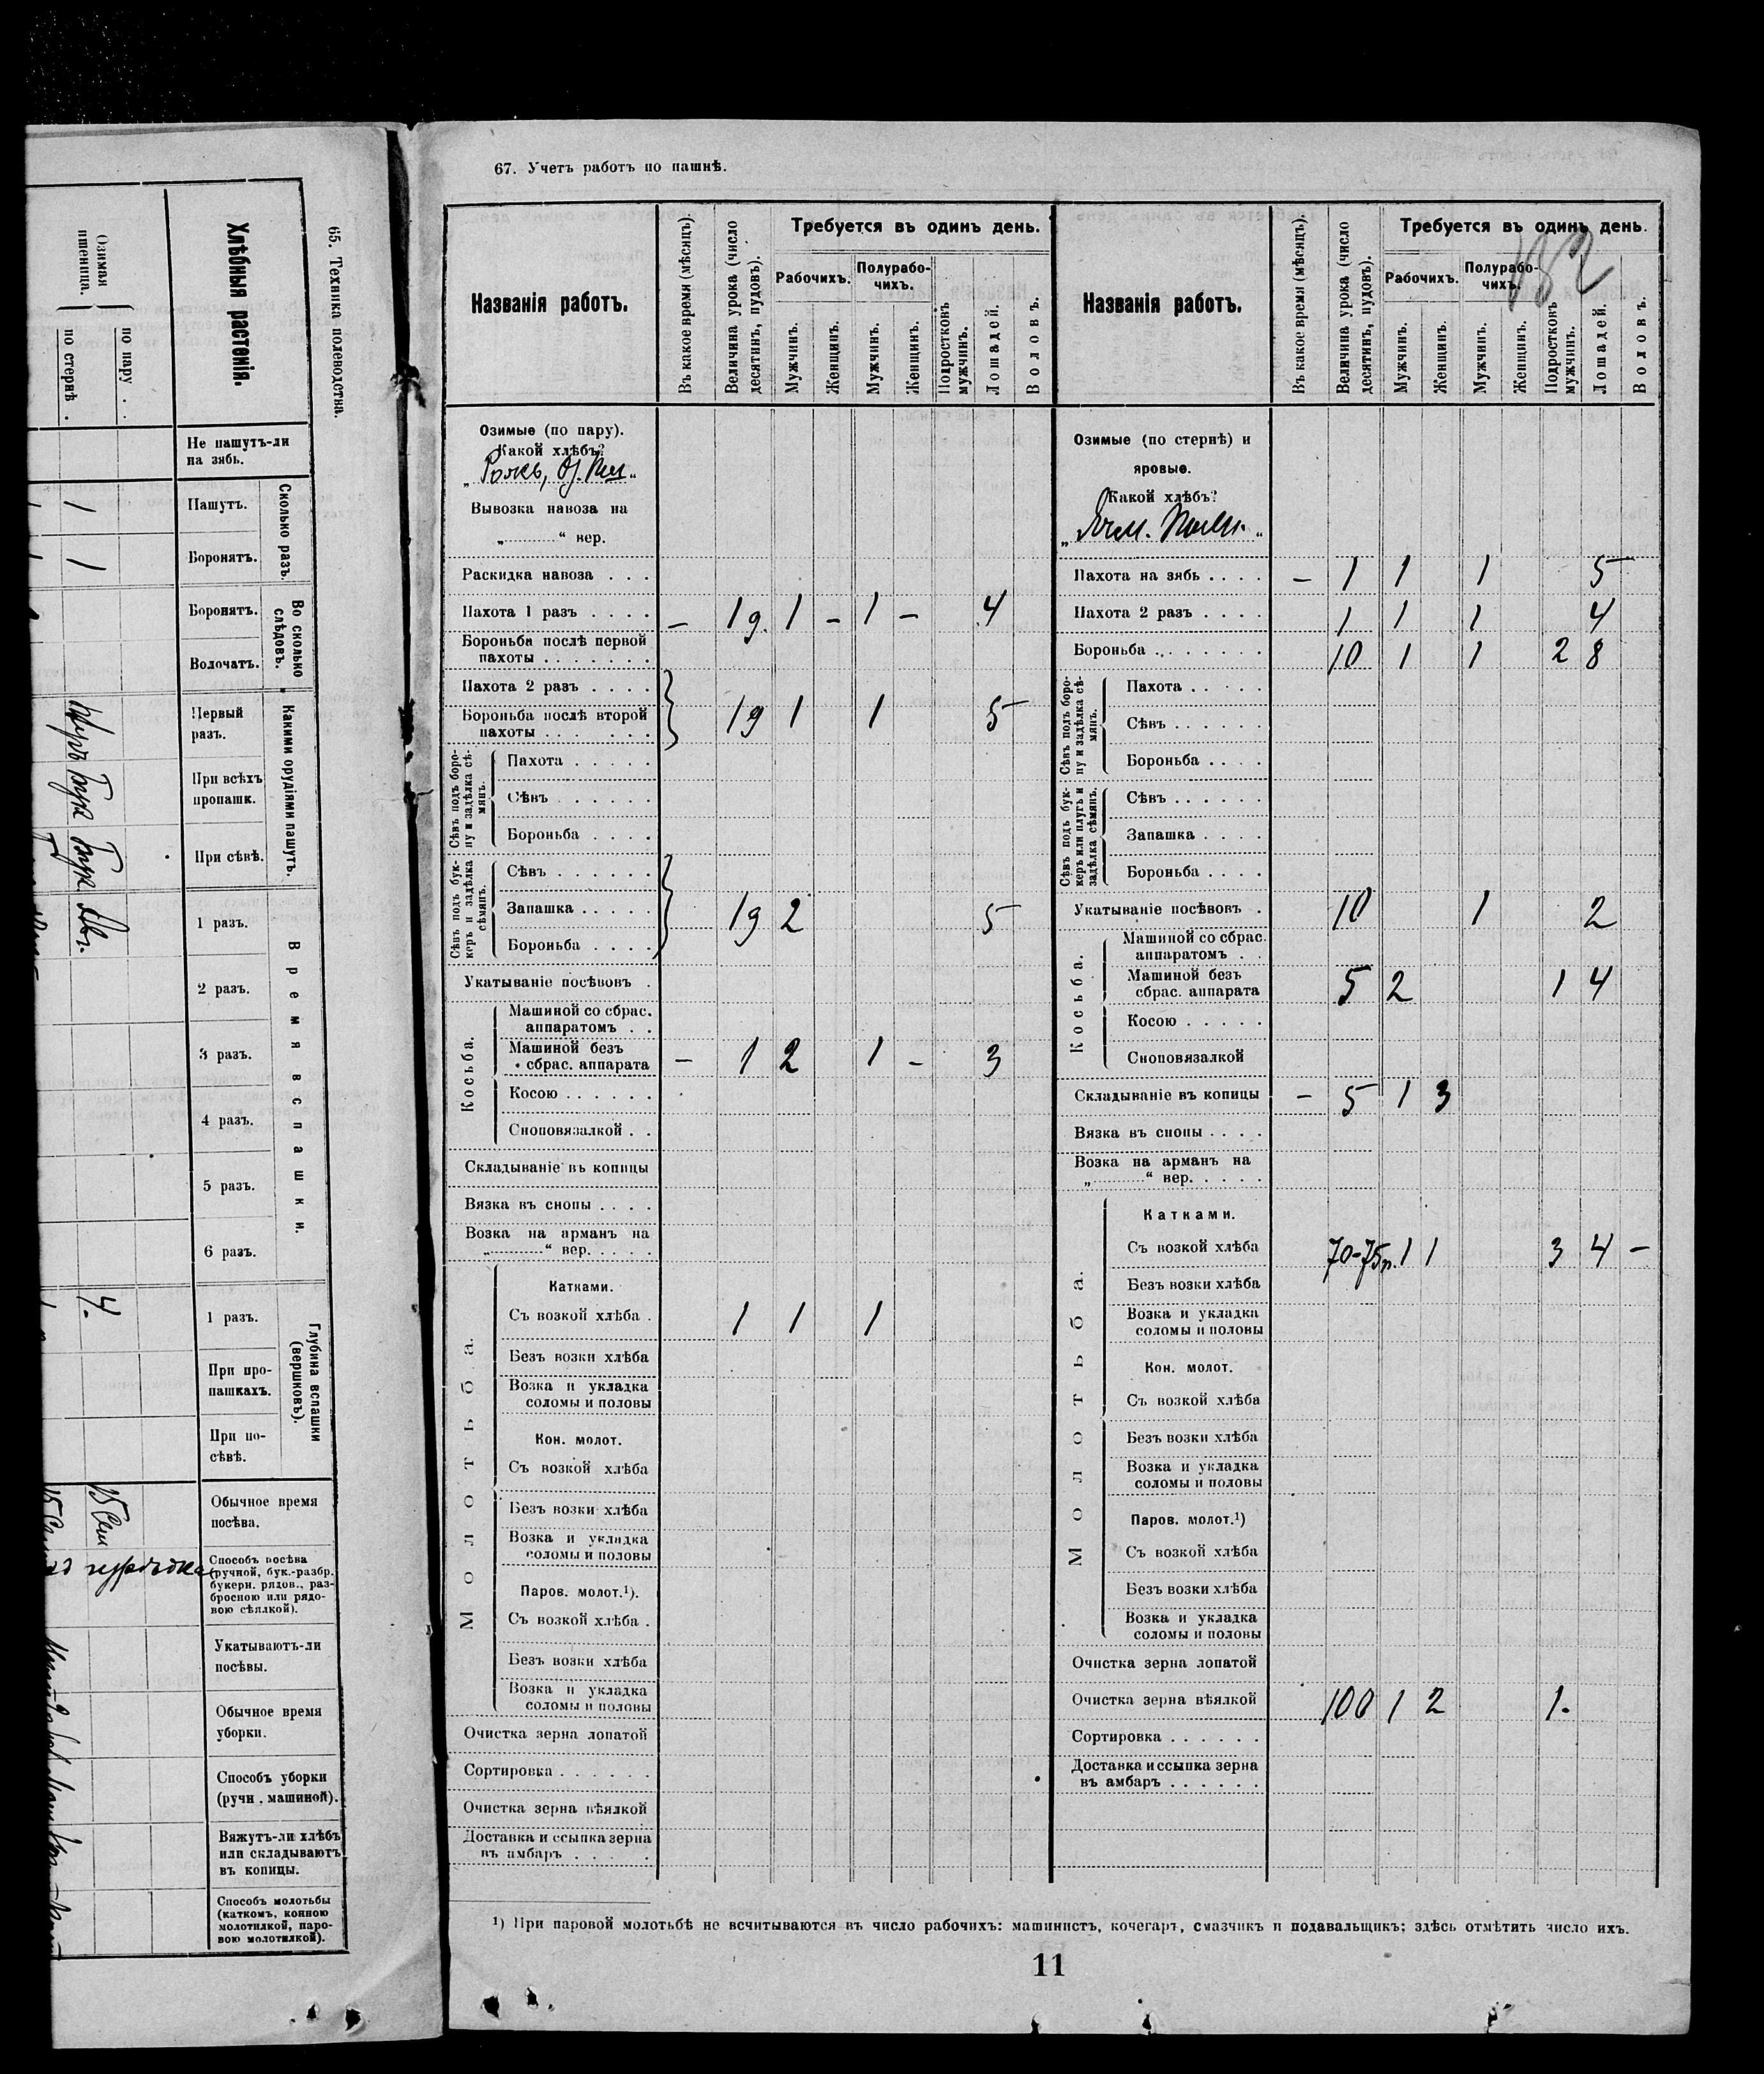 65. Техника полеводства.
Хлѣбныя растенія.
Озимая пшеница.
по пару . .
по стернѣ .
Не пашутъ-ли на зябь.
Сколько разъ.
Пашутъ.
1
Боронятъ.
1
Во сколько слѣдовъ.
Боронятъ.
Волочатъ.
Какими орудіями пашутъ.
Первый разъ.
При всѣхъ пропашк.
При сѣвѣ.
Время вспашки.
1 разъ.
2 разъ.
3 разъ.
4 разъ.
5 разъ.
6 разъ.
Глубина вспашки (вершковъ).
1 разъ.
4.
При про-
пашкахъ.
При по-
сѣвѣ.
Обычное время
посѣва.
Способъ посѣва
(ручной, бук.-разбр.
букерн. рядов., раз-
бросною или рядо-
вою сѣялкой).
Укатываютъ-ли
посѣвы.
Обычное время
уборки.
Способъ уборки
(ручн. машиной).
Вяжутъ-ли хлѣбъ
или складываютъ
въ копицы.
Способъ молотьбы
(каткомъ, конною
молотилкой, паро-
вою молотилкой).
67. Учетъ работъ по пашнѣ.
Названія работъ.
Въ какое время (мѣсяцъ).
Величина урока (число десятинъ, пудовъ).
Требуется въ одинъ день.
Рабочихъ.
Полурабо-
чихъ.
Мужчинъ.
Женщинъ.
Мужчинъ.
Женщинъ.
Подростковъ мужчинъ.
Лошадей.
Воловъ.
Озимые (по пару).
Какой хлѣбъ?
„Рожь, Оз. Пш“
Вывозка навоза на
„ “ вер.
Раскидка навоза . . .
Пахота 1 разъ . . . . – 1 д. 1 – 1 – 4
Бороньба послѣ первой
пахоты . . . . . . .
Пахота 2 разъ . . . .
Бороньба послѣ второй
пахоты . . . . . . . 1 д 1 1 5
Сѣвъ подъ боро-
ну и задѣлка сѣ-
мянъ.
Пахота . . . . .
Сѣвъ . . . . . .
Бороньба . . . .
Сѣвъ подъ бук-
керъ и задѣлка
сѣмянъ.
Сѣвъ . . . . . .
Запашка . . . . . 1 д 2 5
Бороньба . . . .
Укатываніе посѣвовъ .
Косьба.
Машиной со сбрас.
аппаратомъ . .
Машиной безъ
сбрас. аппарата – 1 2 1 – 3
Косою . . . . . .
Сноповязалкой . .
Складываніе въ копицы
Вязка въ снопы . . . .
Возка на арманъ на
„ “ вер. . . . .
Молотьба.
Катками.
Съ возкой хлѣба . 1 1 1
Безъ возки хлѣба
Возка и укладка
соломы и половы
Кон. молот.
Съ возкой хлѣба
Безъ возки хлѣба
Возка и укладка
соломы и половы
Паров. молот.¹).
Съ возкой хлѣба .
Безъ возки хлѣба
Возка и укладка
соломы и половы
Очистка зерна лопатой
Сортировка . . . . . .
Очистка зерна вѣялкой
Доставка и ссыпка зерна
въ амбаръ . . . . .
Названія работъ.
Въ какое время (мѣсяцъ).
Величина урока (число десятинъ, пудовъ).
Требуется въ одинъ день.
182
Рабочихъ.
Полурабо-
чихъ.
Мужчинъ.
Женщинъ.
Мужчинъ.
Женщинъ.
Подростковъ мужчинъ.
Лошадей.
Воловъ.
Озимые (по стернѣ) и
яровые.
Какой хлѣбъ?
„Ячм. Пшен.“
Пахота на зябь . . . . – 1 1 1 5
Пахота 2 разъ . . . . 1 1 1 4
Бороньба . . . . . . . 10 1 1 2 8
Сѣвъ подъ боро-
ну и задѣлка сѣ-
мянъ.
Пахота . . . . .
Сѣвъ . . . . . .
Бороньба . . . .
Сѣвъ подъ бук-
керъ или плугъ и
задѣлка сѣмянъ.
Сѣвъ . . . . . .
Запашка . . . .
Бороньба . . . .
Укатываніе посѣвовъ . 10 1 2
Косьба.
Машиной со сбрас.
аппаратомъ . .
Машиной безъ
сбрас. аппарата 5 2 1 4
Косою . . . . .
Сноповязалкой
Складываніе въ копицы – 5 1 3
Вязка въ снопы . . . .
Возка на арманъ на
„ “ вер. . . . .
Молотьба.
Катками.
Съ возкой хлѣба 70-75п. 1 1 3 4 –
Безъ возки хлѣба
Возка и укладка
соломы и половы
Кон. молот.
Съ возкой хлѣба
Безъ возки хлѣба
Возка и укладка
соломы и половы
Паров. молот.¹)
Съ возкой хлѣба
Безъ возки хлѣба
Возка и укладка
соломы и половы
Очистка зерна лопатой
Очистка зерна вѣялкой 100 1 2 1.
Сортировка . . . . . .
Доставка и ссыпка зерна
въ амбаръ . . . . . .
¹) При паровой молотьбѣ не всчитываются въ число рабочихъ: машинистъ, кочегаръ, смазчикъ и подавальщикъ; здѣсь отмѣтить число ихъ.
11